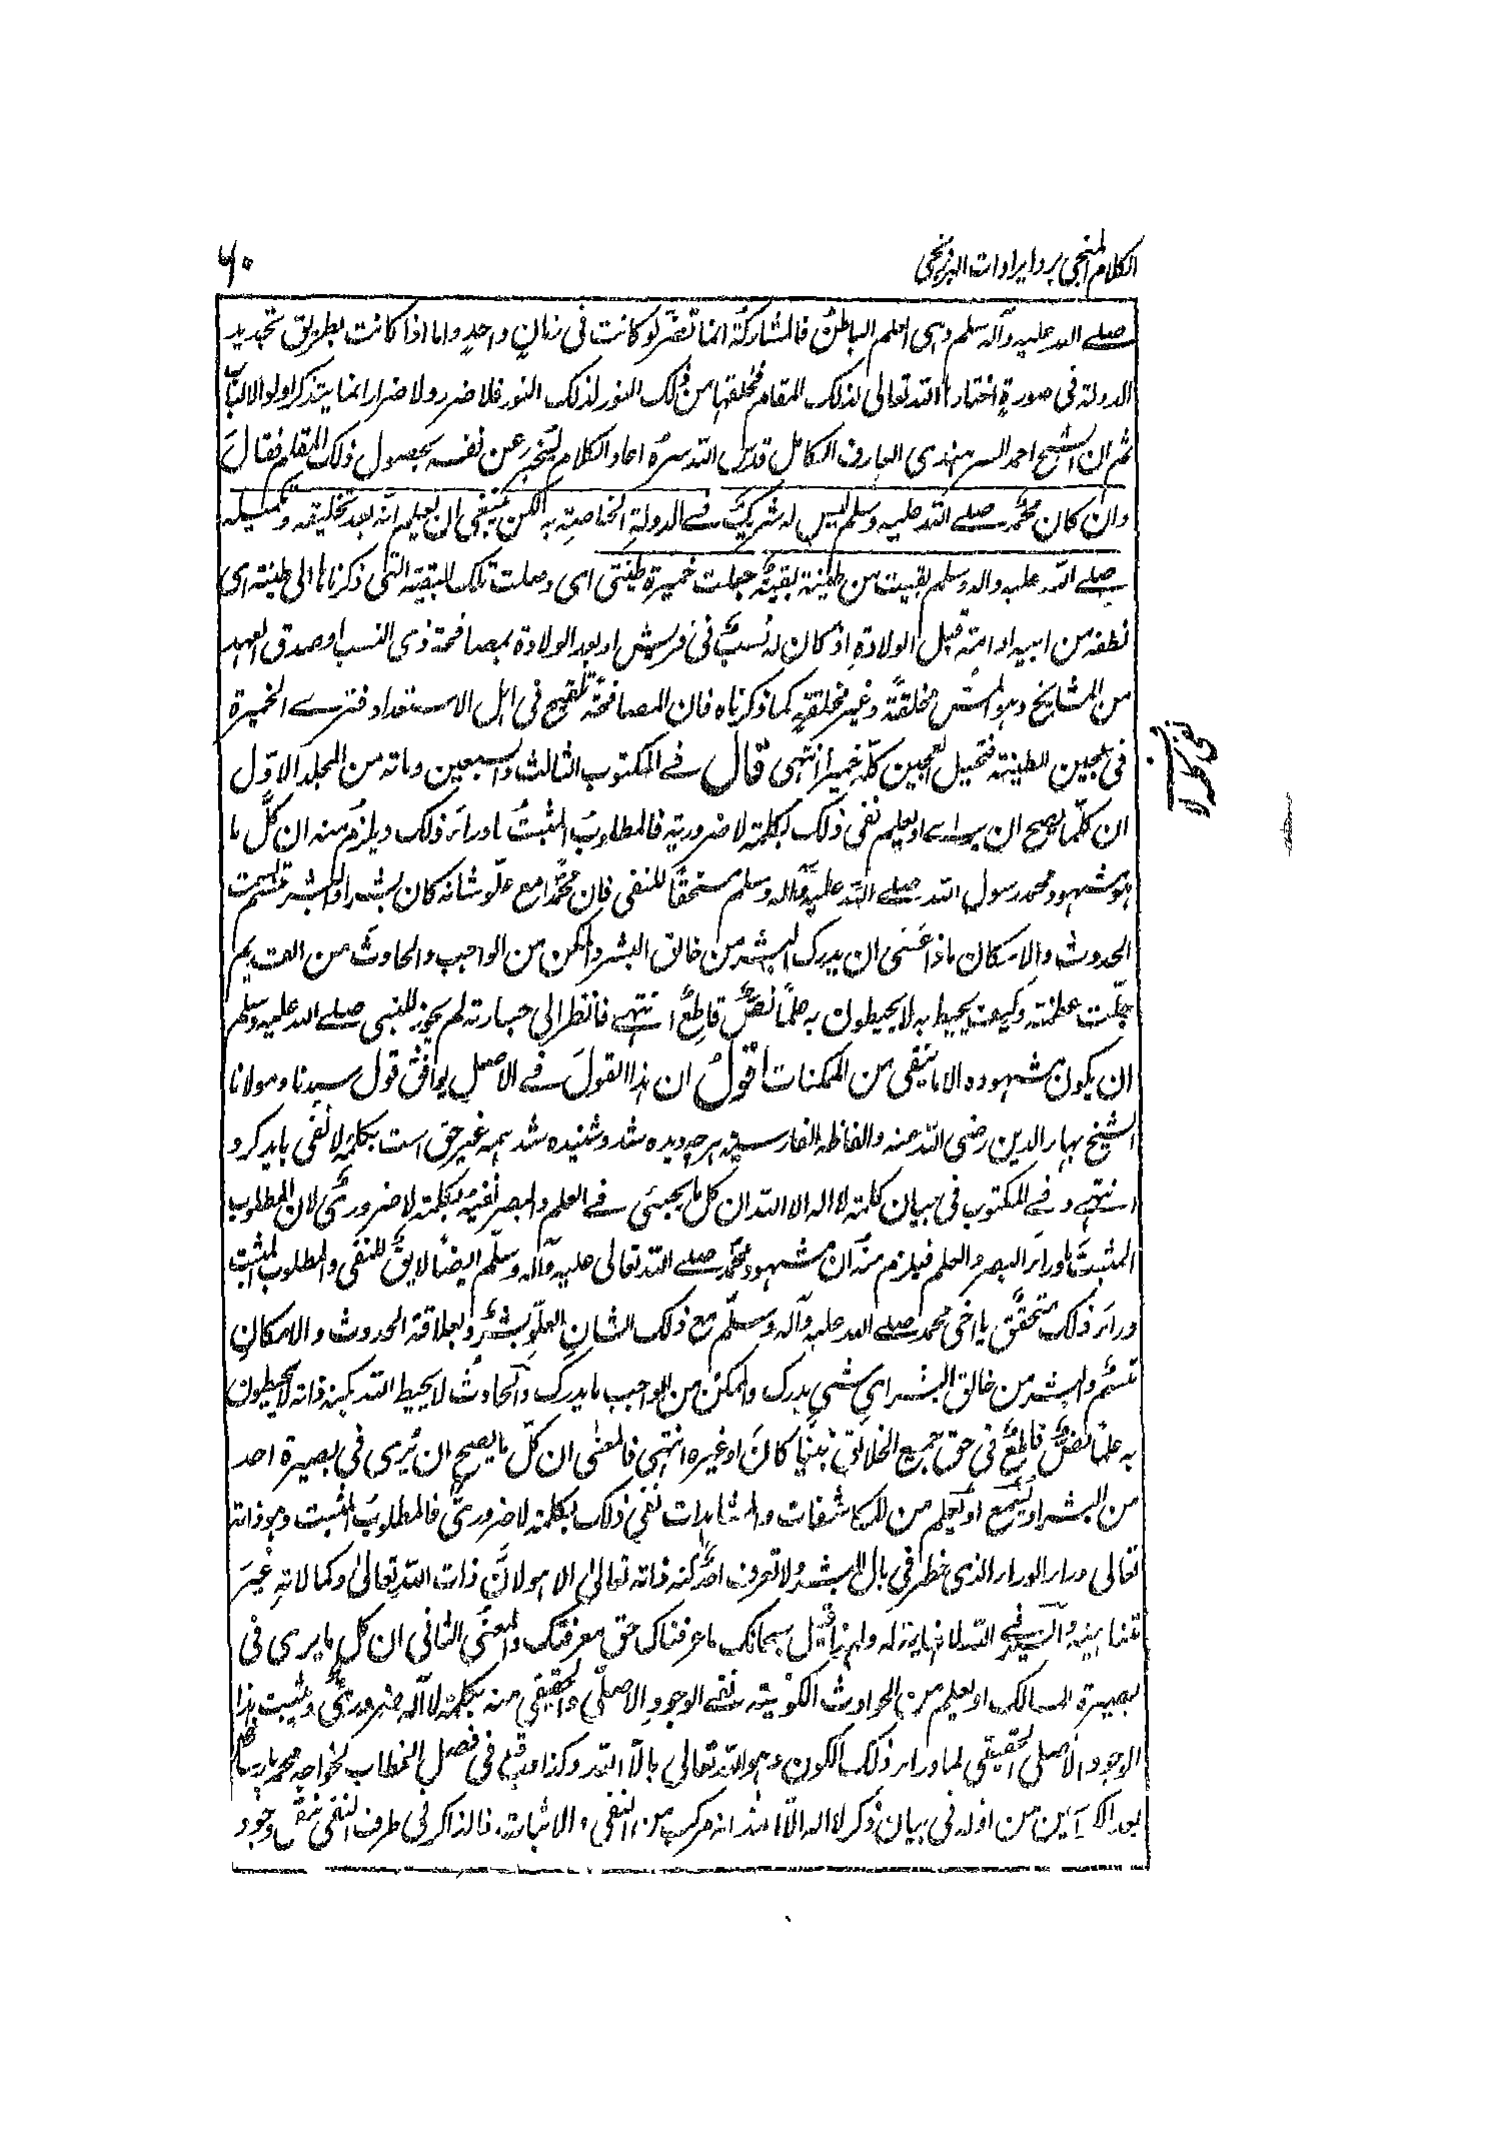 الكلام المنجي برد ايرادات البرزنجي
٦٠
صلے الله عليه وآله سلم وهى العلم الباطن فالمشاركة انما تضر لو كانت فى زمان واحد واما اذا كانت بطريق تجديد
الدولة فى صورة اختارها الله تعالى لذلك المقام فخلقها من ذلك النور لذلك النور فلا ضرر ولا ضرار انما يتذكر اولو الالباب
ثم ان الشيخ احمد السرهندى العارف الكامل قدس الله سره اعاد الكلام ليخبر عن نفسه بحصول ذلك المقام فقال
وان كان محمد صلے الله عليه وسلم ليس له شريك فے الدولة الخاصة به لكن ينبغى ان يعلم انه بعد تخليقه وتكميله
صلے الله عليه واله وسلم بقيت من طينة بقية جعلت خميرة طينتى اى وصلت تلك البقية التى ذكرناها الى طينته اى
نطفه من ابيه او امه قبل الولادة اذ كان له نسب فى قريش او بعد الولادة بمصافحة ذى النسب او صدق العهد
من المشايخ وهو المس مخلقة وغير مخلقة كما ذكرناه فان المصافحة تلقيح فى اهل الاستعداد فتسرے الخميرة
فى عجين الطينة فتحيل العجين كله خميرا انتهى قال فے المكتوب الثالث والسبعين ومائة من المجلد الاول
ان كلما يصح ان يراے او يعلم نفى ذلك بكلمة لا ضرورية فالمطلوب المثبت ماوراء ذلك ويلزم منه ان كل ما
هو مشهود محمد رسول الله صلے الله عليه وآله وسلم مستحقا للنفى فان محمدا مع علو شانه كان بشرا والبشر متسم بسمت
الحدوث والامكان ماذا عسى ان يدرك البشر من خالق البشر والممكن من الواجب والحادث من القديم
جلت عظمته وكيف يحيط به لا يحيطون به علما نص قاطع انتهے فانظر الى جسارته لم يجوز للنبى صلے الله عليه وسلم
ان يكون مشهوده الا ما ينفى من الممكنات اقول ان هذا القول فے الاصل يوافق قول سيدنا ومولانا
الشيخ بهاء الدين رضى الله عنه والفاظه الفارسية هرچه ديده شد وشنيده شد همه غير حق است بكلمۀ لا نفى بايد كرد
انتهے وفے المكتوب فى بيان كلمة لا اله الا الله ان كل ما يجيئ فے العلم والبصر نفيه بكلمة لا ضرورى لان المطلوب
المثبت ماوراء البصر والعلم فيلزم منه ان مشهود محمد صلے الله تعالى عليه وآله وسلم ايضا لايق للنفى والمطلوب المثبت
وراء ذلك متحقق يا اخى محمد صلے الله عليه وآله وسلم مع ذلك الشان العلو بشر وبعلاقة الحدوث والامكان
متسم والبشر من خالق البشر اى شي يدرك والممكن من الواجب ما يدرك والحادث لا يحيط الله بكنه ذاته لا يحيطون
به علما نص قاطع فى حق جميع الخلائق نبيا كان او غيره انتهى فالمعنى ان كل ما يصح ان يرى فى بصيرة احد
من البشر او يسمع او يعلم من المكاشفات والمشاهدات نفى ذلك بكلمة لا ضرورى فالمطلوب المثبت وهو ذاته
تعالى وراء الوراء الذى خطر فى بال البشر ولا تعرف احد كنه ذاته تعالى الا هو لان ذات الله تعالى وكمالاته غير
متناهية والسير فے الله لا نهاية له ولهذا قيل سبحانك ما عرفناك حق معرفتك والمعنى الثانى ان كل ما يرى فى
بصيرة السالك او يعلم من الحوادث الكونية نفے الوجود الاصلى والحقيقى منه بكلمة لا اله ضرورى ويثبت هذا
الوجود الاصلى الحقيقى لما وراء ذلك الكون وهو الله تعالى بالا الله وكذا وقع فى فصل الخطاب لخواجه محمد پارسا
بعد من اوله فى بيان ذكر لا اله الا الله انه مركب من النفى والاثبات فالذاكر فى طرف النفى ينفى وجود